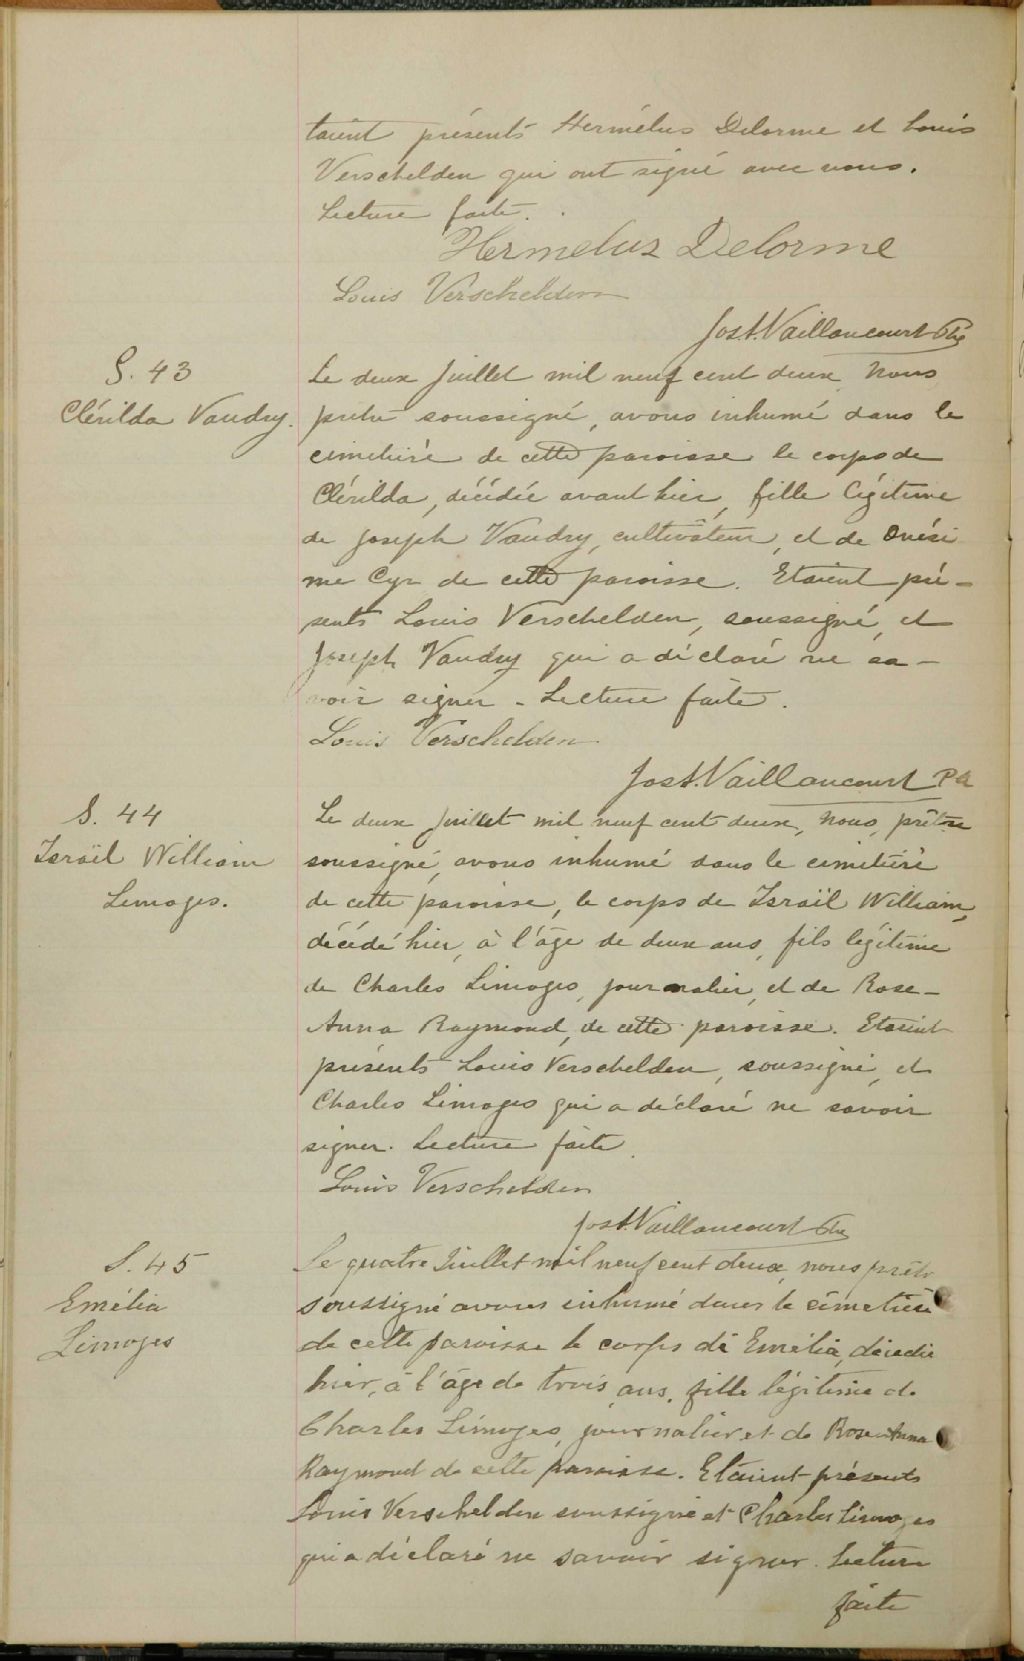 taient présents Hermélus Delorme et Louis
Verschelden qui ont signé avec nous.
Lecture faite.
Hermelus Delorme
Louis Verschelden
Jos A. Vaillancourt Ptre
S. 43
Clérilda Vaudry.
Le deux Juillet mil neuf cent deux, Nous
prêtre soussigné, avons inhumé dans le
cimetière de cette paroisse le corps de
Clérilda, décédée avant hier, fille légitime
de Joseph Vaudry, cultivateur, et de Onési
me Cyr de cette paroisse. Etaient pré-
sents Louis Verschelden, soussigné, et
Joseph Vaudry qui a déclaré ne sa-
voir signer - Lecture faite.
Louis Verschelden
Jos A. Vaillancourt
S. 44
Israël William
Limoges.
Le deux Juillet mil neuf cent deux, Nous, prêtre
soussigné, avons inhumé dans le cimetière
de cette paroisse, le corps de Israël William,
décédé hier, à l'âge de deux ans, fils légitime
de Charles Limoges, journalier, et de Rose-
Anna Raymond, de cette paroisse. Etaient
présents Louis Verschelden, soussigné, et
Charles Limoges qui a déclaré ne savoir
signer. Lecture faite.
Louis Verschelden
Jos A. Vaillancourt Ptre
S. 45
Emélia
Limoges
Le quatre Juillet mil neuf cent deux, nous prêtr
soussigné avons inhumé dans le cimetière
de cette paroisse le corps de Emélia, décédée
hier, à l'âge de trois ans, fille légitime de
Charles Limoges, journalier et de Rose-Anna
Raymond de cette paroisse. Etaient présents
Louis Verschelden soussigné et Charles Limoges
qui a déclaré ne savoir signer. Lecture
faite